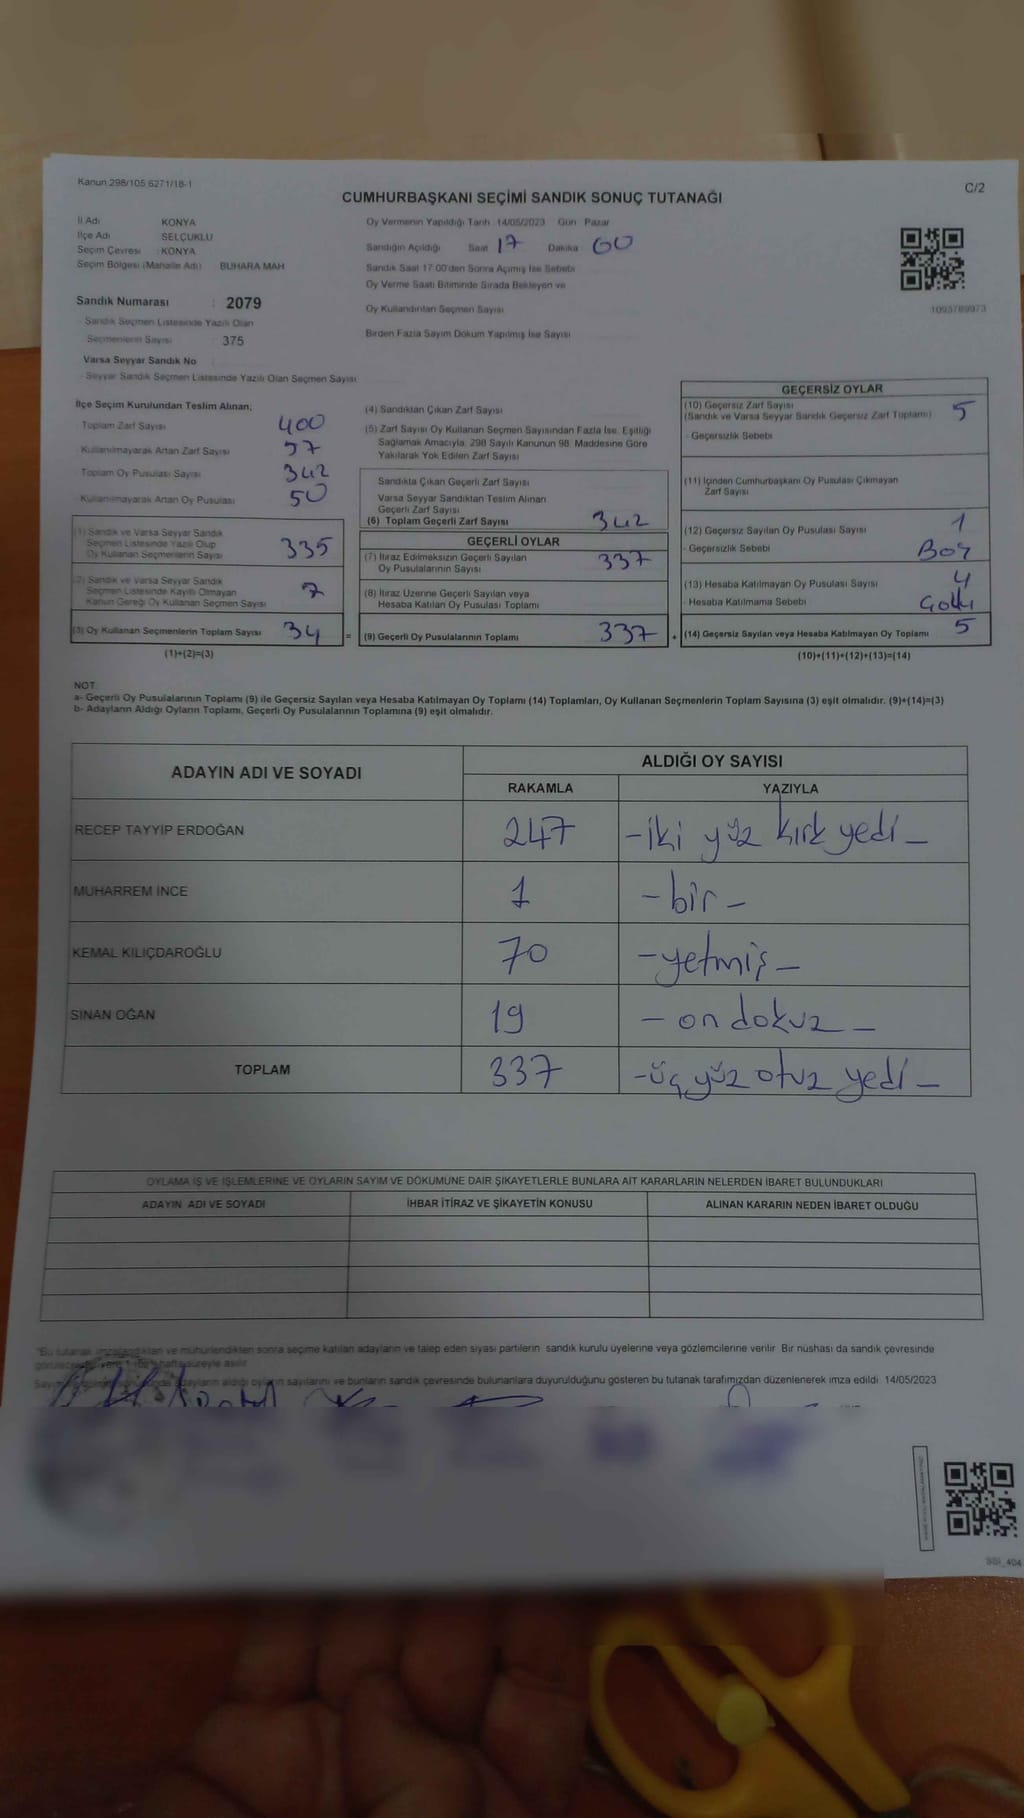 Kanun 298/105 6271/18-1
C/2
CUMHURBAŞKANI SEÇİMİ SANDIK SONUÇ TUTANAĞI
İl Adı KONYA
İlçe Adı SELÇUKLU
Seçim Çevresi : KONYA
Seçim Bölgesi (Mahalle Adı) BUHARA MAH
Sandık Numarası : 2079
- Sandık Seçmen Listesinde Yazılı Olan
Seçmenlerin Sayısı 375
Varsa Seyyar Sandık No
- Seyyar Sandık Seçmen Listesinde Yazılı Olan Seçmen Sayısı
Oy Vermenin Yapıldığı Tarih : 14/05/2023 Gün Pazar
Sandığın Açıldığı Saat 17 Dakika 00
Sandık Saat 17:00'den Sonra Açılmış İse Sebebi
Oy Verme Saati Bitiminde Sırada Bekleyen ve
Oy Kullandırılan Seçmen Sayısı
Birden Fazla Sayım Döküm Yapılmış İse Sayısı
1093789973
İlçe Seçim Kurulundan Teslim Alınan;
- Toplam Zarf Sayısı 400
- Kullanılmayarak Artan Zarf Sayısı 57
- Toplam Oy Pusulası Sayısı 342
- Kullanılmayarak Artan Oy Pusulası 50
(1) Sandık ve Varsa Seyyar Sandık
Seçmen Listesinde Yazılı Olup
Oy Kullanan Seçmenlerin Sayısı 335
(2) Sandık ve Varsa Seyyar Sandık
Seçmen Listesinde Kayıtlı Olmayan
Kanun Gereği Oy Kullanan Seçmen Sayısı 7
(3) Oy Kullanan Seçmenlerin Toplam Sayısı 34 =
(1)+(2)=(3)
(4) Sandıktan Çıkan Zarf Sayısı
(5) Zarf Sayısı Oy Kullanan Seçmen Sayısından Fazla İse, Eşitliği
Sağlamak Amacıyla, 298 Sayılı Kanunun 98. Maddesine Göre
Yakılarak Yok Edilen Zarf Sayısı
Sandıkta Çıkan Geçerli Zarf Sayısı
Varsa Seyyar Sandıktan Teslim Alınan
Geçerli Zarf Sayısı
(6) Toplam Geçerli Zarf Sayısı 342
GEÇERLİ OYLAR
(7) İtiraz Edilmeksizin Geçerli Sayılan
Oy Pusulalarının Sayısı 337
(8) İtiraz Üzerine Geçerli Sayılan veya
Hesaba Katılan Oy Pusulası Toplamı
(9) Geçerli Oy Pusulalarının Toplamı 337 +
GEÇERSİZ OYLAR
(10) Geçersiz Zarf Sayısı
(Sandık ve Varsa Seyyar Sandık Geçersiz Zarf Toplamı) 5
- Geçersizlik Sebebi
(11) İçinden Cumhurbaşkanı Oy Pusulası Çıkmayan
Zarf Sayısı
(12) Geçersiz Sayılan Oy Pusulası Sayısı 1
- Geçersizlik Sebebi Boş
(13) Hesaba Katılmayan Oy Pusulası Sayısı 4
- Hesaba Katılmama Sebebi
(14) Geçersiz Sayılan veya Hesaba Katılmayan Oy Toplamı 5
(10)+(11)+(12)+(13)=(14)
NOT:
a- Geçerli Oy Pusulalarının Toplamı (9) ile Geçersiz Sayılan veya Hesaba Katılmayan Oy Toplamı (14) Toplamları, Oy Kullanan Seçmenlerin Toplam Sayısına (3) eşit olmalıdır. (9)+(14)=(3)
b- Adayların Aldığı Oyların Toplamı, Geçerli Oy Pusulalarının Toplamına (9) eşit olmalıdır.
ADAYIN ADI VE SOYADI
ALDIĞI OY SAYISI
RAKAMLA YAZIYLA
RECEP TAYYİP ERDOĞAN 247 -iki yüz kırk yedi-
MUHARREM İNCE 1 -bir-
KEMAL KILIÇDAROĞLU 70 -yetmiş-
SİNAN OĞAN 19 -on dokuz-
TOPLAM 337 -üç yüz otuz yedi-
OYLAMA İŞ VE İŞLEMLERİNE VE OYLARIN SAYIM VE DÖKÜMÜNE DAİR ŞİKAYETLERLE BUNLARA AİT KARARLARIN NELERDEN İBARET BULUNDUKLARI
ADAYIN ADI VE SOYADI İHBAR İTİRAZ VE ŞİKAYETİN KONUSU ALINAN KARARIN NEDEN İBARET OLDUĞU
"Bu tutanak imzalandıktan ve mühürlendikten sonra seçime katılan adayların ve talep eden siyasi partilerin sandık kurulu üyelerine veya gözlemcilerine verilir. Bir nüshası da sandık çevresinde
hafta süreyle asılır
adayların aldığı oyların sayılarını ve bunların sandık çevresinde bulunanlara duyurulduğunu gösteren bu tutanak tarafımızdan düzenlenerek imza edildi 14/05/2023
SSI_404